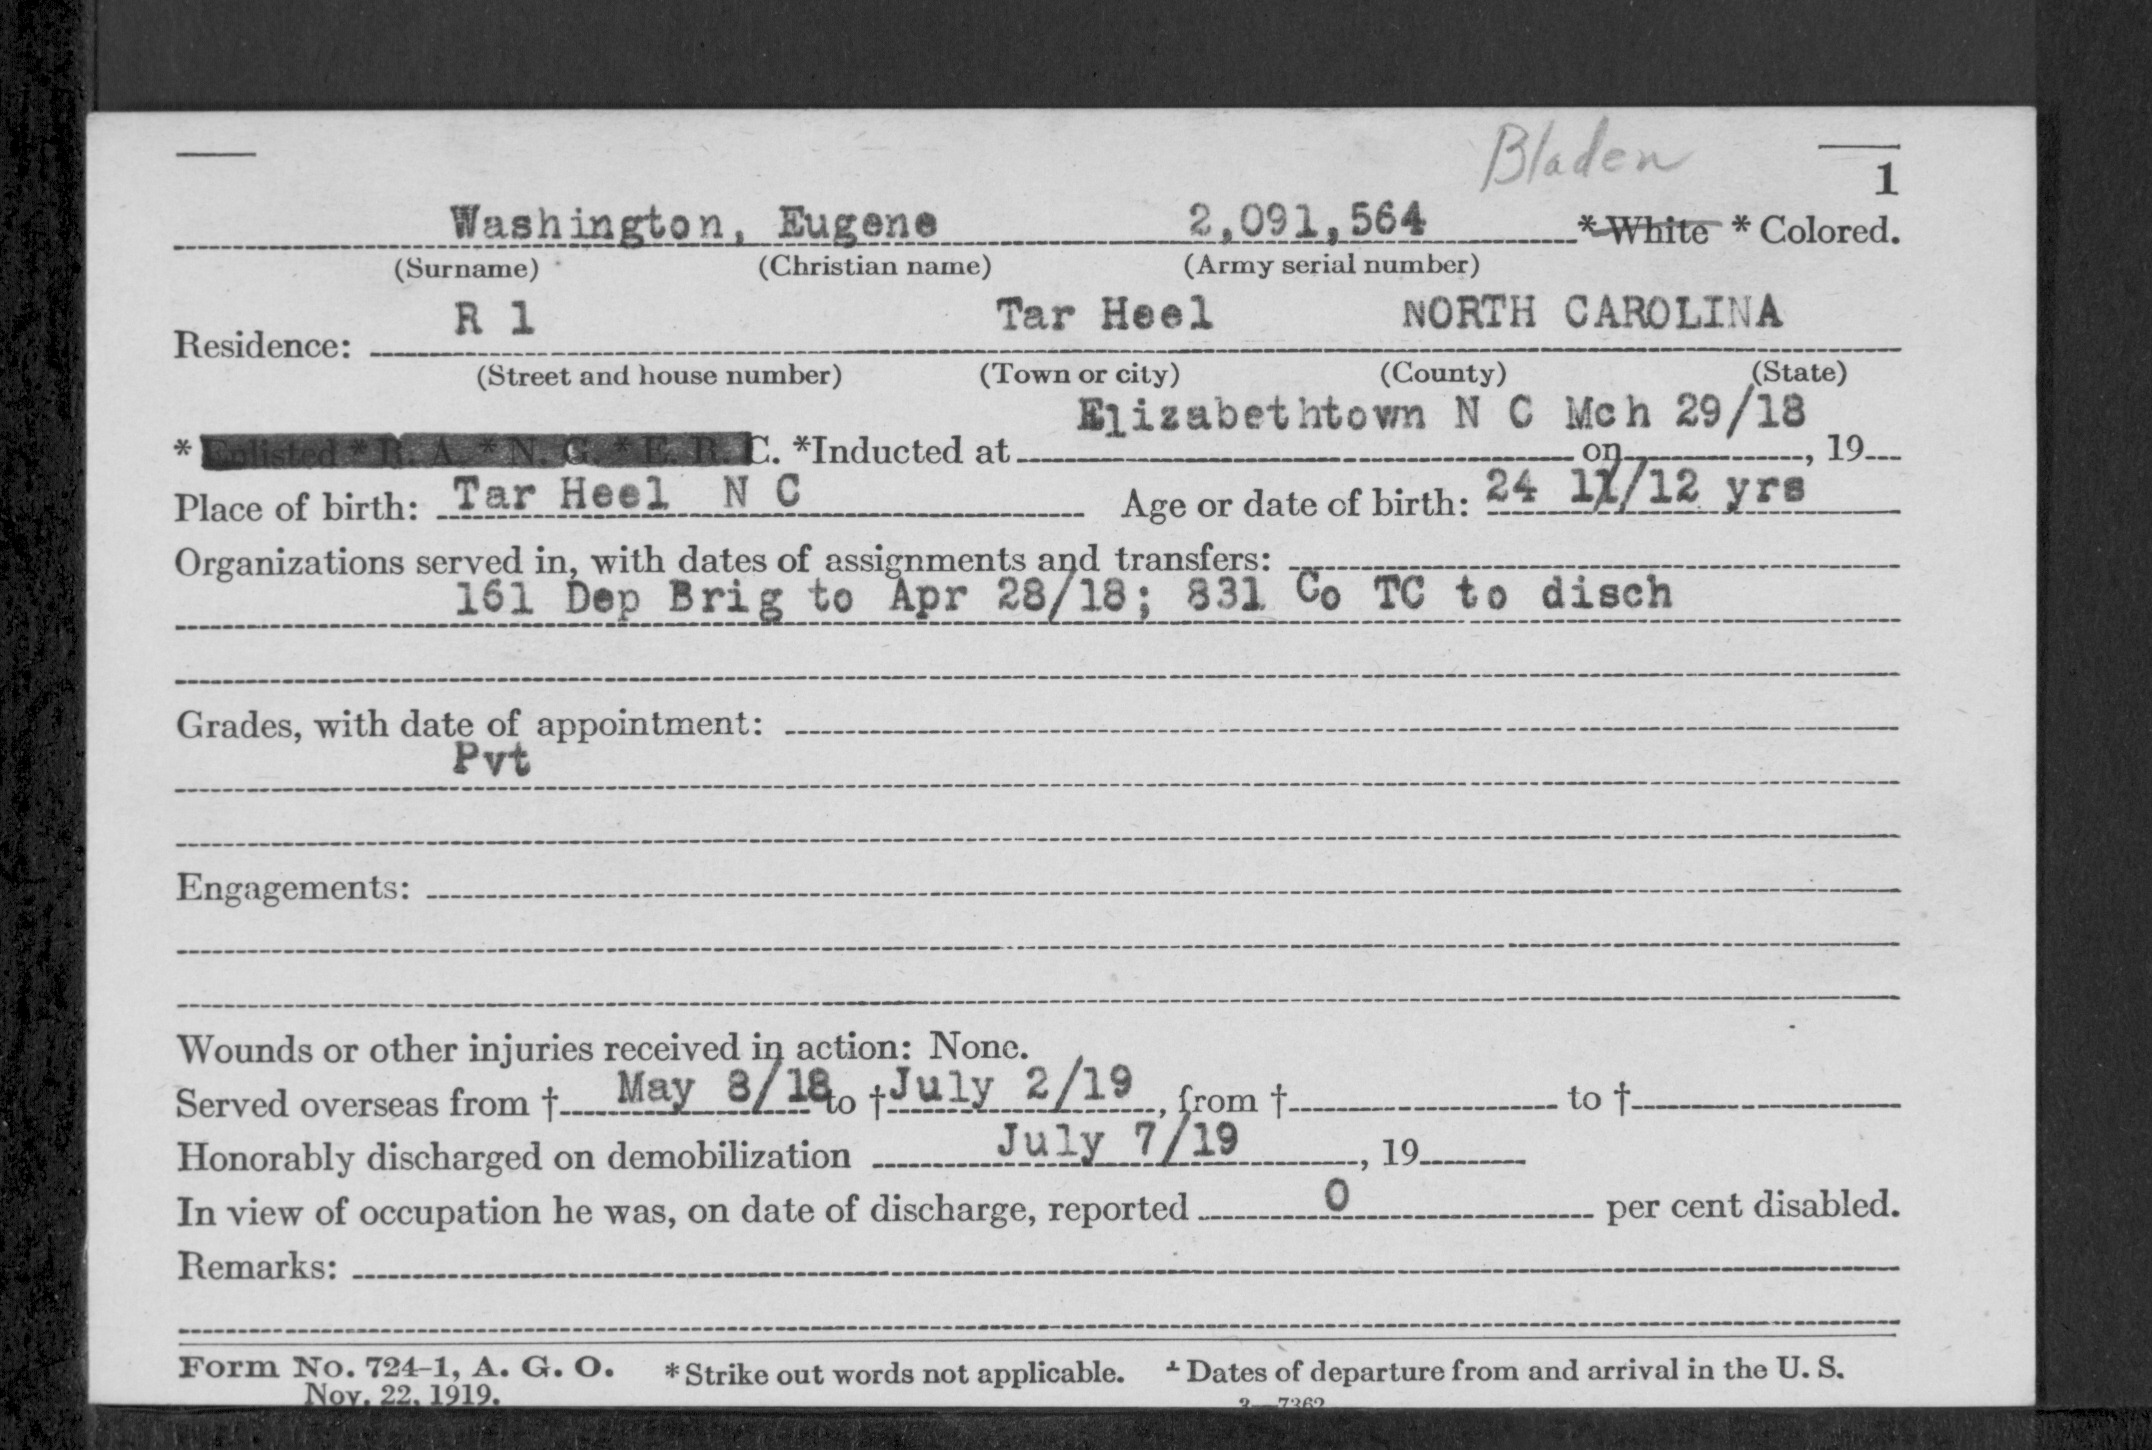 Bladen
1
Washington, Eugene 2,091,564 *White *Colored.
(Surname) (Christian name) (Army serial number)
R 1 Tar Heel NORTH CAROLINA
Residence:
(Street and house number) (Town or city) (County) (State)
Elizabethtown N C Mch 29/18
*Enlisted *R. A. *N. G. *E. R. C. *Inducted at on , 19
Place of birth: Tar Heel N C Age or date of birth: 24 11/12 yrs
Organizations served in, with dates of assignments and transfers:
161 Dep Brig to Apr 28/18; 831 Co TC to disch
Grades, with date of appointment:
Pvt
Engagements:
Wounds or other injuries received in action: None.
Served overseas from † May 8/18 to † July 2/19, from † to †
Honorably discharged on demobilization July 7/19, 19
In view of occupation he was, on date of discharge, reported 0 per cent disabled.
Remarks:
Form No. 724-1, A. G. O. *Strike out words not applicable. † Dates of departure from and arrival in the U. S.
Nov. 22, 1919. 3—7362